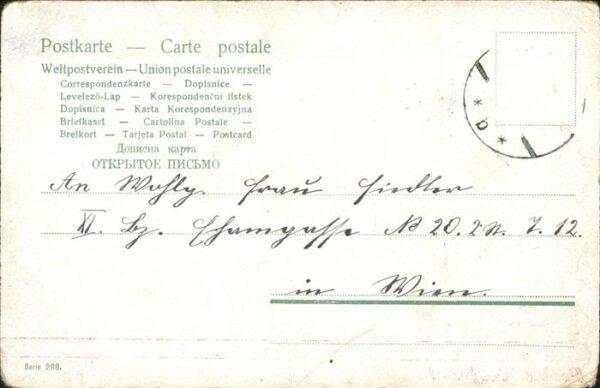 Postkarte — Carte postale
Weltpostverein — Union postale universelle
Correspondenzkarte — Dopisnice —
Levelező-Lap — Korespondenční lístek
Dopisnica — Karta Korespondenzyjna
Briefkaart — Cartolina Postale —
Brefkort — Tarjeta Postal — Postcard
Дописна карта
ОТКРЫТОЕ ПИСЬМО
* b *
An Wohlg. Frau Fiedler
XI. Bz. № 20. 2 St. T. 12.
in Wien.
Serie 288.